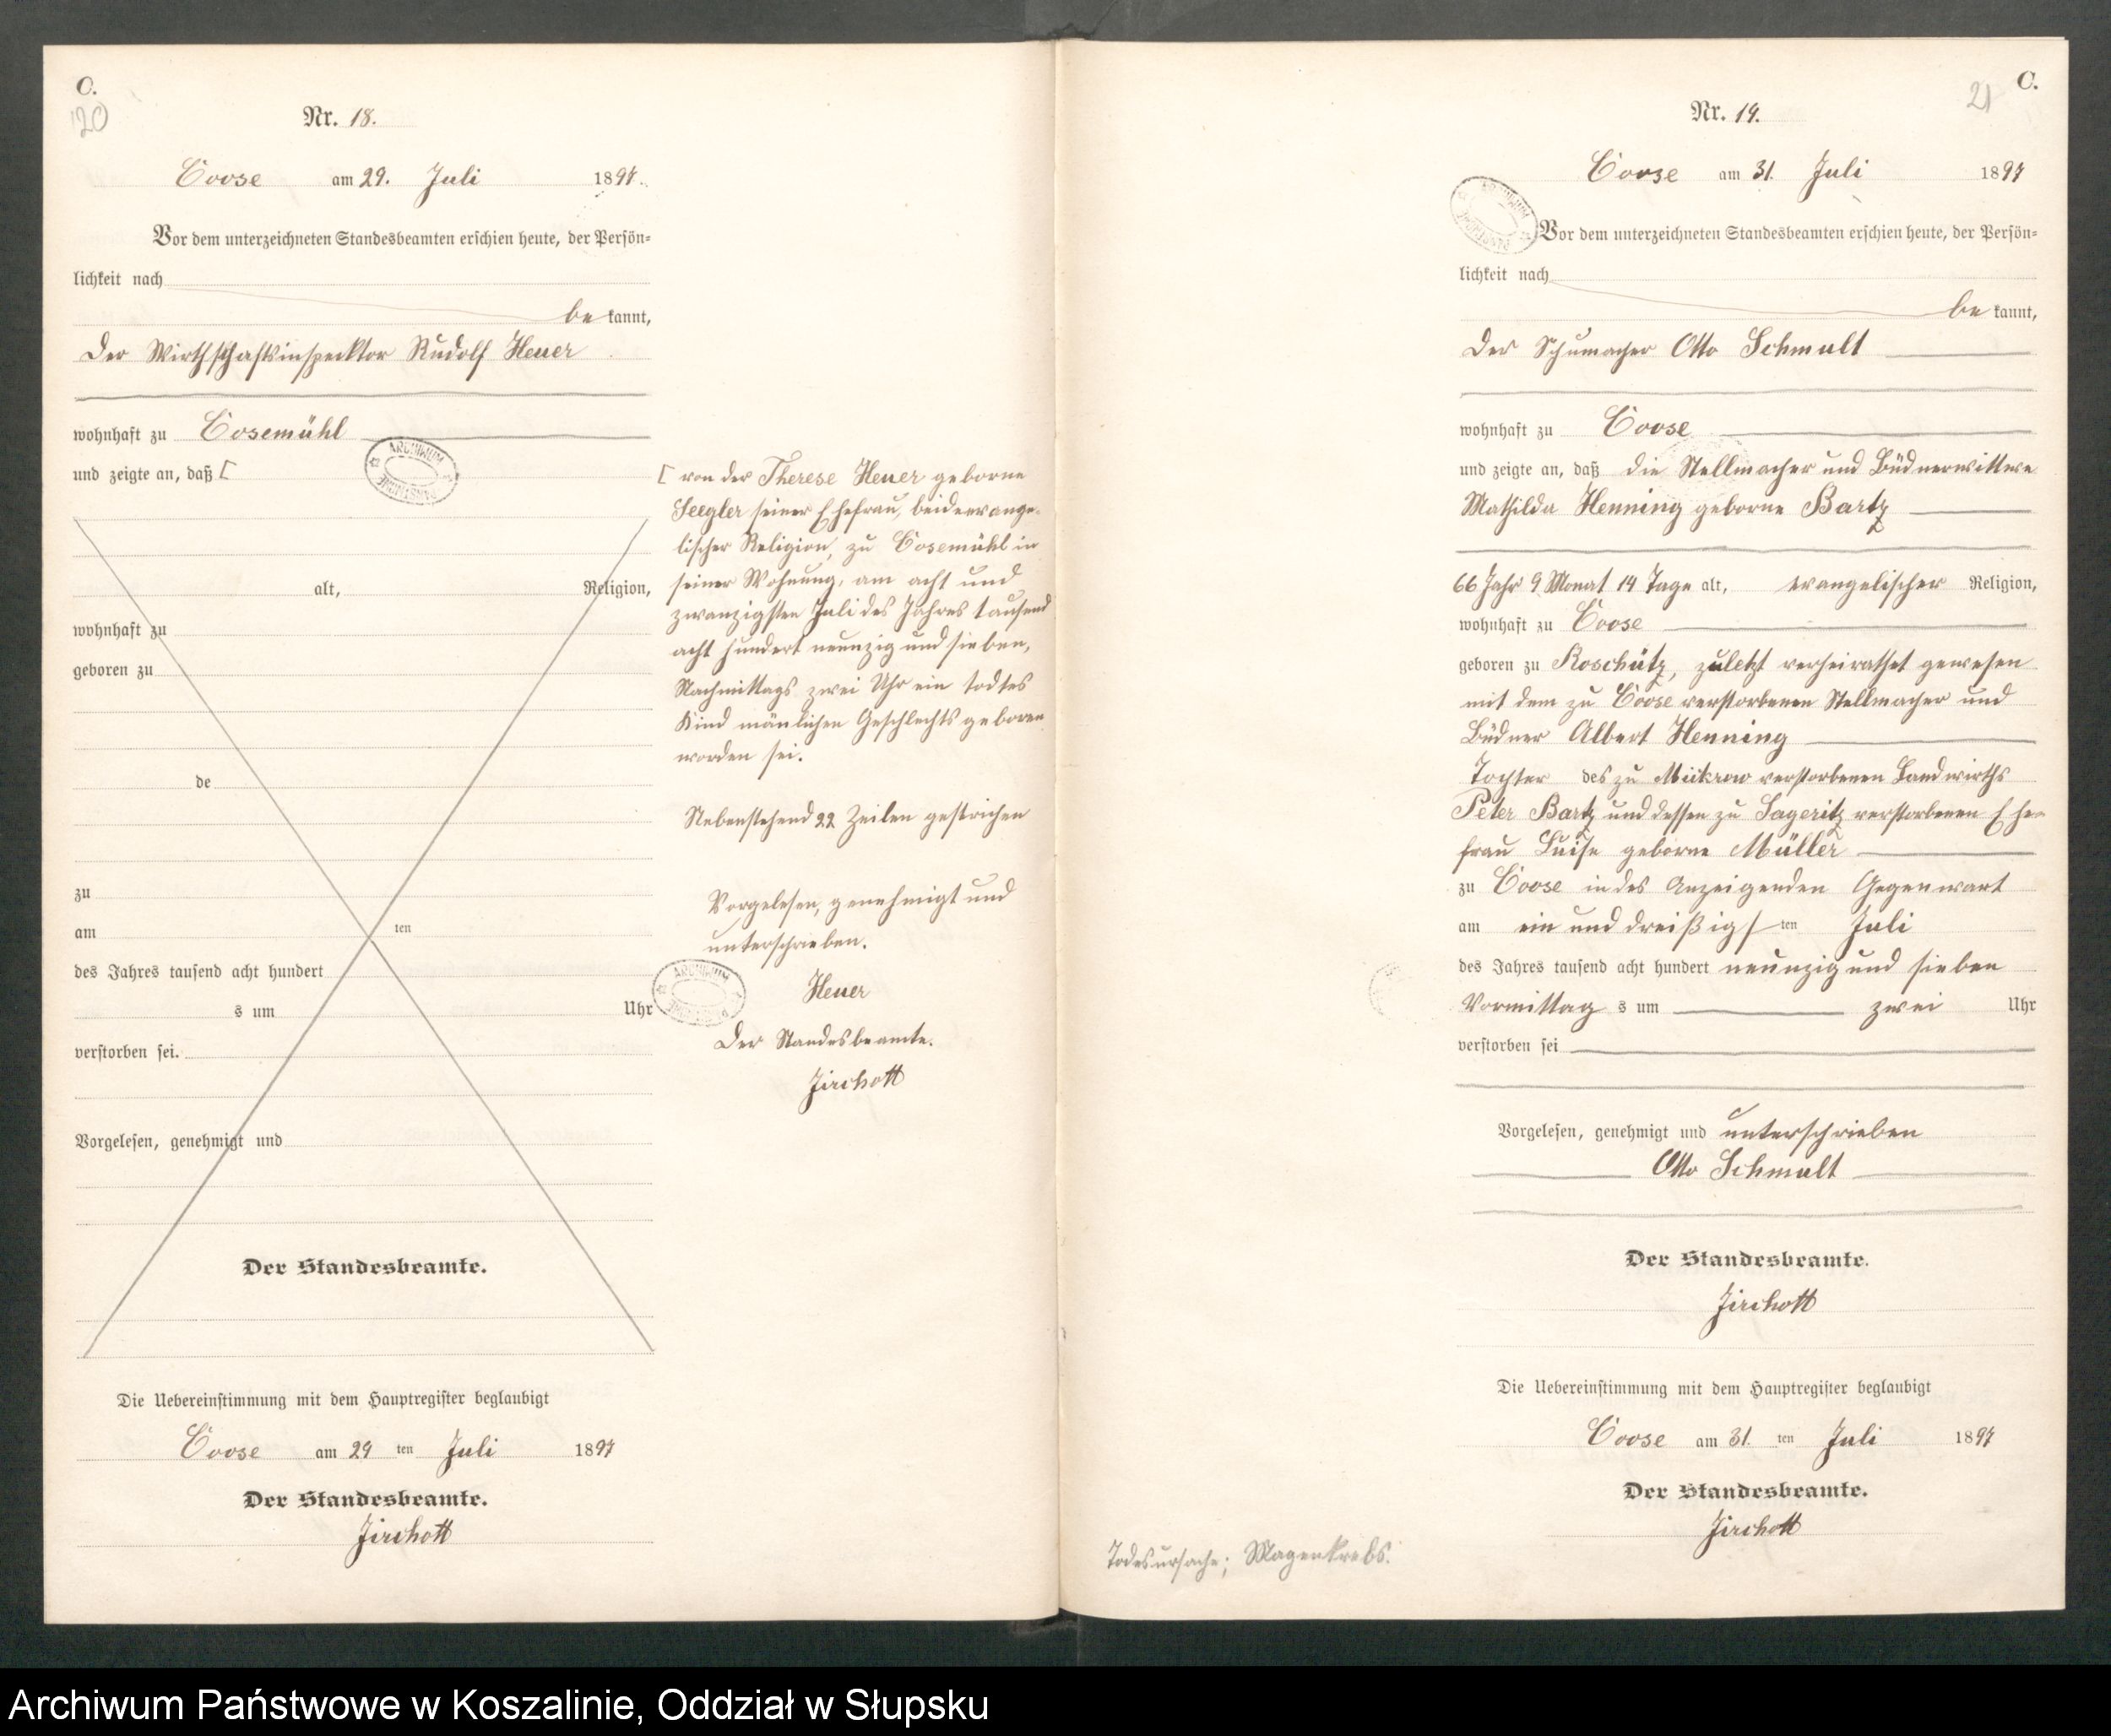 C.
20
Nr. 18.
Coose am 29. Juli 1897.
Vor dem unterzeichneten Standesbeamten erschien heute, der Persön-
lichkeit nach
be kannt,
der Wirthschaftsinspecktor Rudolf Heuer
wohnhaft zu Cosemühl
und zeigte an, daß [
alt, Religion,
wohnhaft zu
geboren zu
de
zu
am ten
des Jahres tausend acht hundert
s um Uhr
verstorben sei.
Vorgelesen, genehmigt und
Der Standesbeamte.
Die Uebereinstimmung mit dem Hauptregister beglaubigt
Coose am 29 ten Juli 1897
Der Standesbeamte.
Jirchott
[ von der Therese Heuer geborne
Seegler seiner Ehefrau, beide evange-
lischer Religion, zu Cosemühl in
seiner Wohnung, am acht und
zwanzigsten Juli des Jahres tausend
acht hundert neunzig und sieben,
Nachmittags zwei Uhr ein todtes
Kind mänlichen Geschlechts geboren
worden sei.
Nebenstehend 22 Zeilen gestrichen
Vorgelesen, genehmigt und
unterschrieben.
Heuer
Der Standesbeamte.
Jirchott
C.
21
Nr. 19.
Coose am 31. Juli 1897
Vor dem unterzeichneten Standesbeamten erschien heute, der Persön-
lichkeit nach
be kannt,
der Schumacher Otto Schmalt
wohnhaft zu Coose
und zeigte an, daß die Stellmacher und Büdnerwittwe
Mathilda Henning geborne Bartz
66 Jahr 9 Monat 14 Tage alt, evangelischer Religion,
wohnhaft zu Coose
geboren zu Roschütz, zuletzt verheirathet gewesen
mit dem zu Coose verstorbenen Stellmacher und
Büdner Albert Henning
Tochter des zu Mickrow verstorbenen Landwirths
Peter Bartz und dessen zu Sageritz verstorbenen Ehe-
frau Luise geborne Müller
zu Coose in des Anzeigenden Gegenwart
am ein und dreißigs ten Juli
des Jahres tausend acht hundert neunzig und sieben
Vormittag s um zwei Uhr
verstorben sei
Vorgelesen, genehmigt und unterschrieben
Otto Schmalt
Der Standesbeamte.
Jirchott
Die Uebereinstimmung mit dem Hauptregister beglaubigt
Coose am 31. ten Juli 1897
Der Standesbeamte.
Jirchott
Todesursache; Magenkrebs.
Archiwum Państwowe w Koszalinie, Oddział w Słupsku